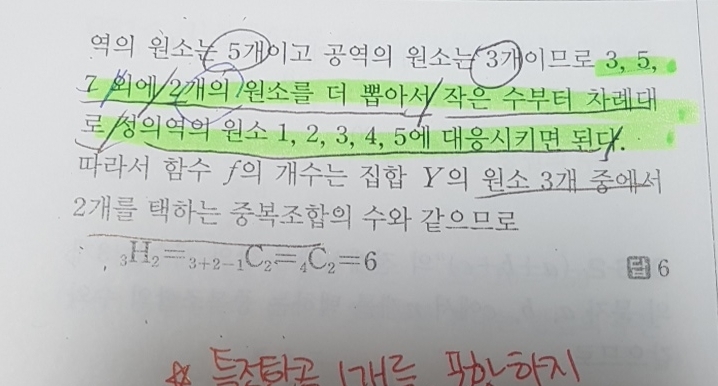 역의 원소는 5개이고 공역의 원소는 3개이므로 3, 5,
7 외에 2개의 원소를 더 뽑아서 작은 수부터 차례대
로 정의역의 원소 1, 2, 3, 4, 5에 대응시키면 된다.
따라서 함수 f의 개수는 집합 Y의 원소 3개 중에서
2개를 택하는 중복조합의 수와 같으므로
₃H₂=₃₊₂₋₁C₂=₄C₂=6 답 6
1개를 포함하지